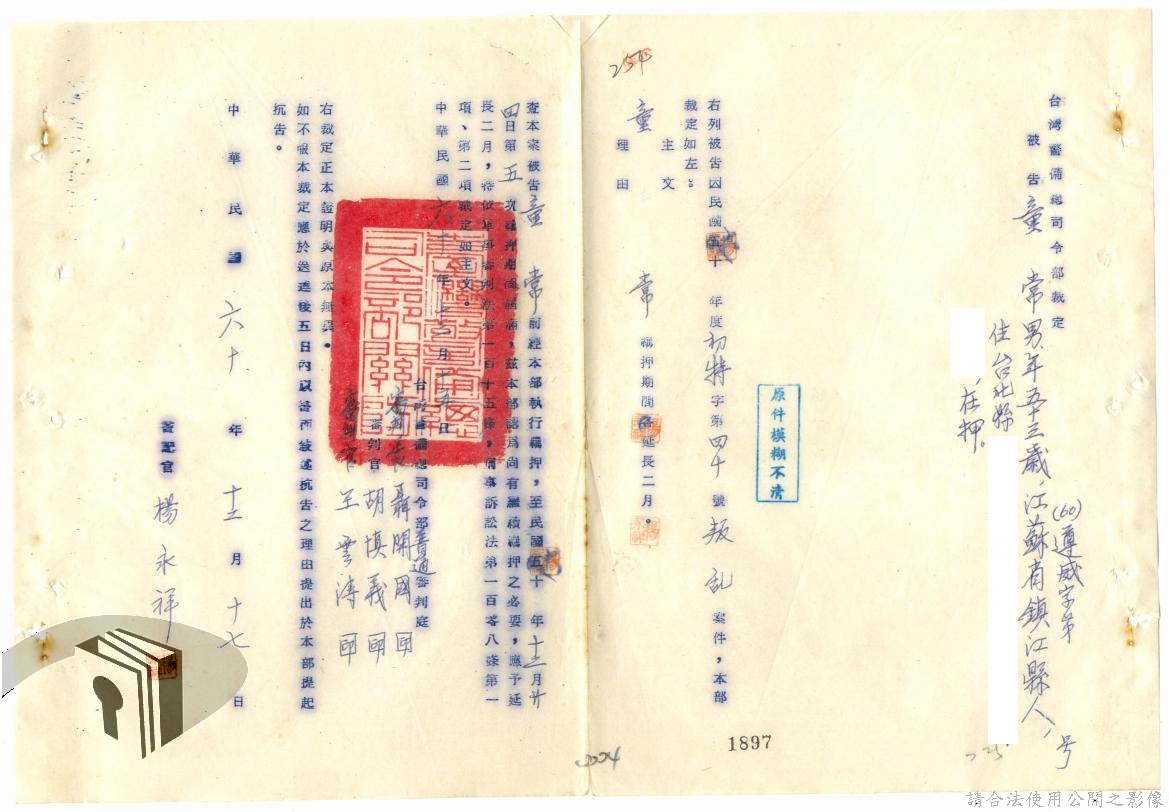 台灣警備總司令部裁定
(60)遵威字第 号
被告童常男年五十三歲,江蘇省鎮江縣人,
住台北縣
在押。
右列被告因民國 十 年度初特字第四十號叛乱案件,本部
裁定如左:
主文
童常羈押期間 延長二月。
理由
查本案被告童常前經本部執行羈押,至民國 十 年十二月廿
四日第五次羈押期間屆滿,茲本部認為尚有繼續羈押之必要,應予延
長二月,特依軍事審判法第一百十五條,刑事訴訟法第一百零八條第一
項、第二項裁定如主文。
中華民國六十年十二月十五日
台灣警備總司令部普通審判庭
審判長聶開國
審判官胡慎義
審判官王雲濤
右裁定正本證明與原本無異。
如不服本裁定應於送達後五日內以書面敍述抗告之理由提出於本部提起
抗告。
中華民國六十年十二月十七日
書記官楊永祥
原件模糊不清
1897
請合法使用公開之影像